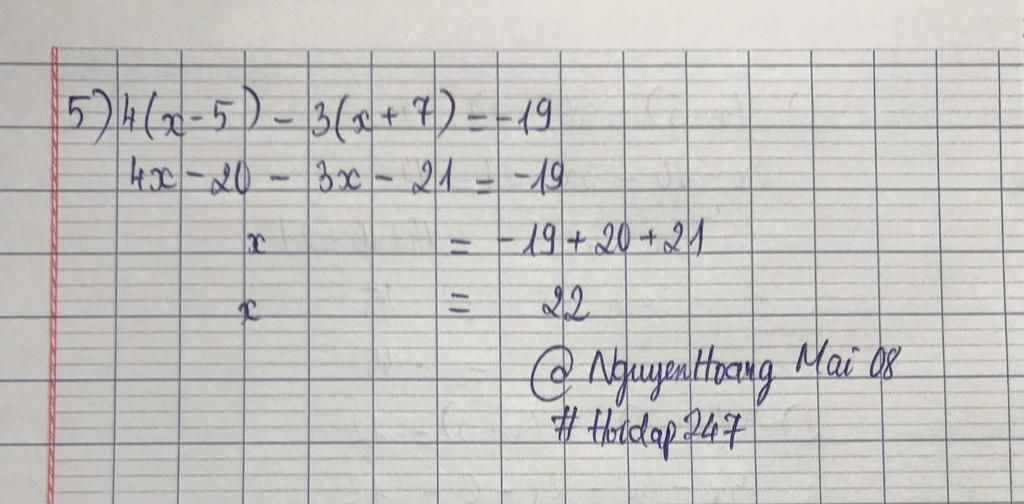 5) 4(x-5) - 3(x+7) = -19
4x - 20 - 3x - 21 = -19
x = -19 + 20 + 21
x = 22
@ NguyenHoang Mai 08
# Hoidap247